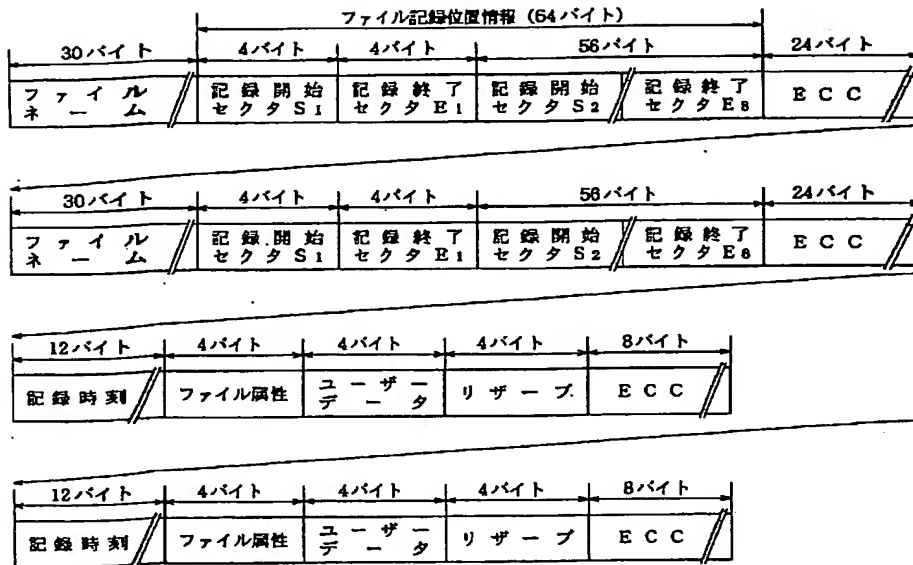 ファイル記録位置情報(64バイト)
30バイト 4バイト 4バイト 56バイト 24バイト
ファイルネーム 記録開始セクタS1 記録終了セクタE1 記録開始セクタS2 記録終了セクタE8 ECC
30バイト 4バイト 4バイト 56バイト 24バイト
ファイルネーム 記録開始セクタS1 記録終了セクタE1 記録開始セクタS2 記録終了セクタE8 ECC
12バイト 4バイト 4バイト 4バイト 8バイト
記録時刻 ファイル属性 ユーザーデータ リザーブ ECC
12バイト 4バイト 4バイト 4バイト 8バイト
記録時刻 ファイル属性 ユーザーデータ リザーブ ECC